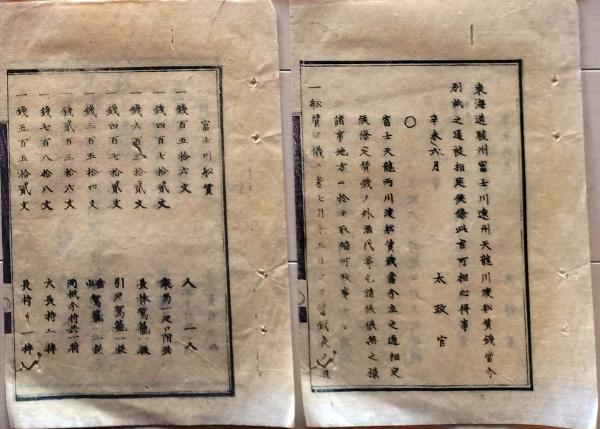 東海道駿州富士川遠州天龍川渡船賃錢當今
別紙之通被相定候條此旨可相心得事
辛未六月
太政官
○
富士天龍両川渡船賃錢當今左之通相定
候條定賃錢ノ外酒代等乞請候儀無之様
諸事地方ニ於テ取締可致事
一船賃ノ儀
富士川船賃
一錢百五拾六文 人 一人
一錢四百七拾貳文
一錢六百 文
一錢四百七拾貳文 引戸駕籠一挺
一錢三百五拾四文 山駕籠一挺
一錢貳百三拾六文 両掛分持共一荷
一錢七百八拾八文 大長持一棹
一錢五百五拾貳文 長持一棹